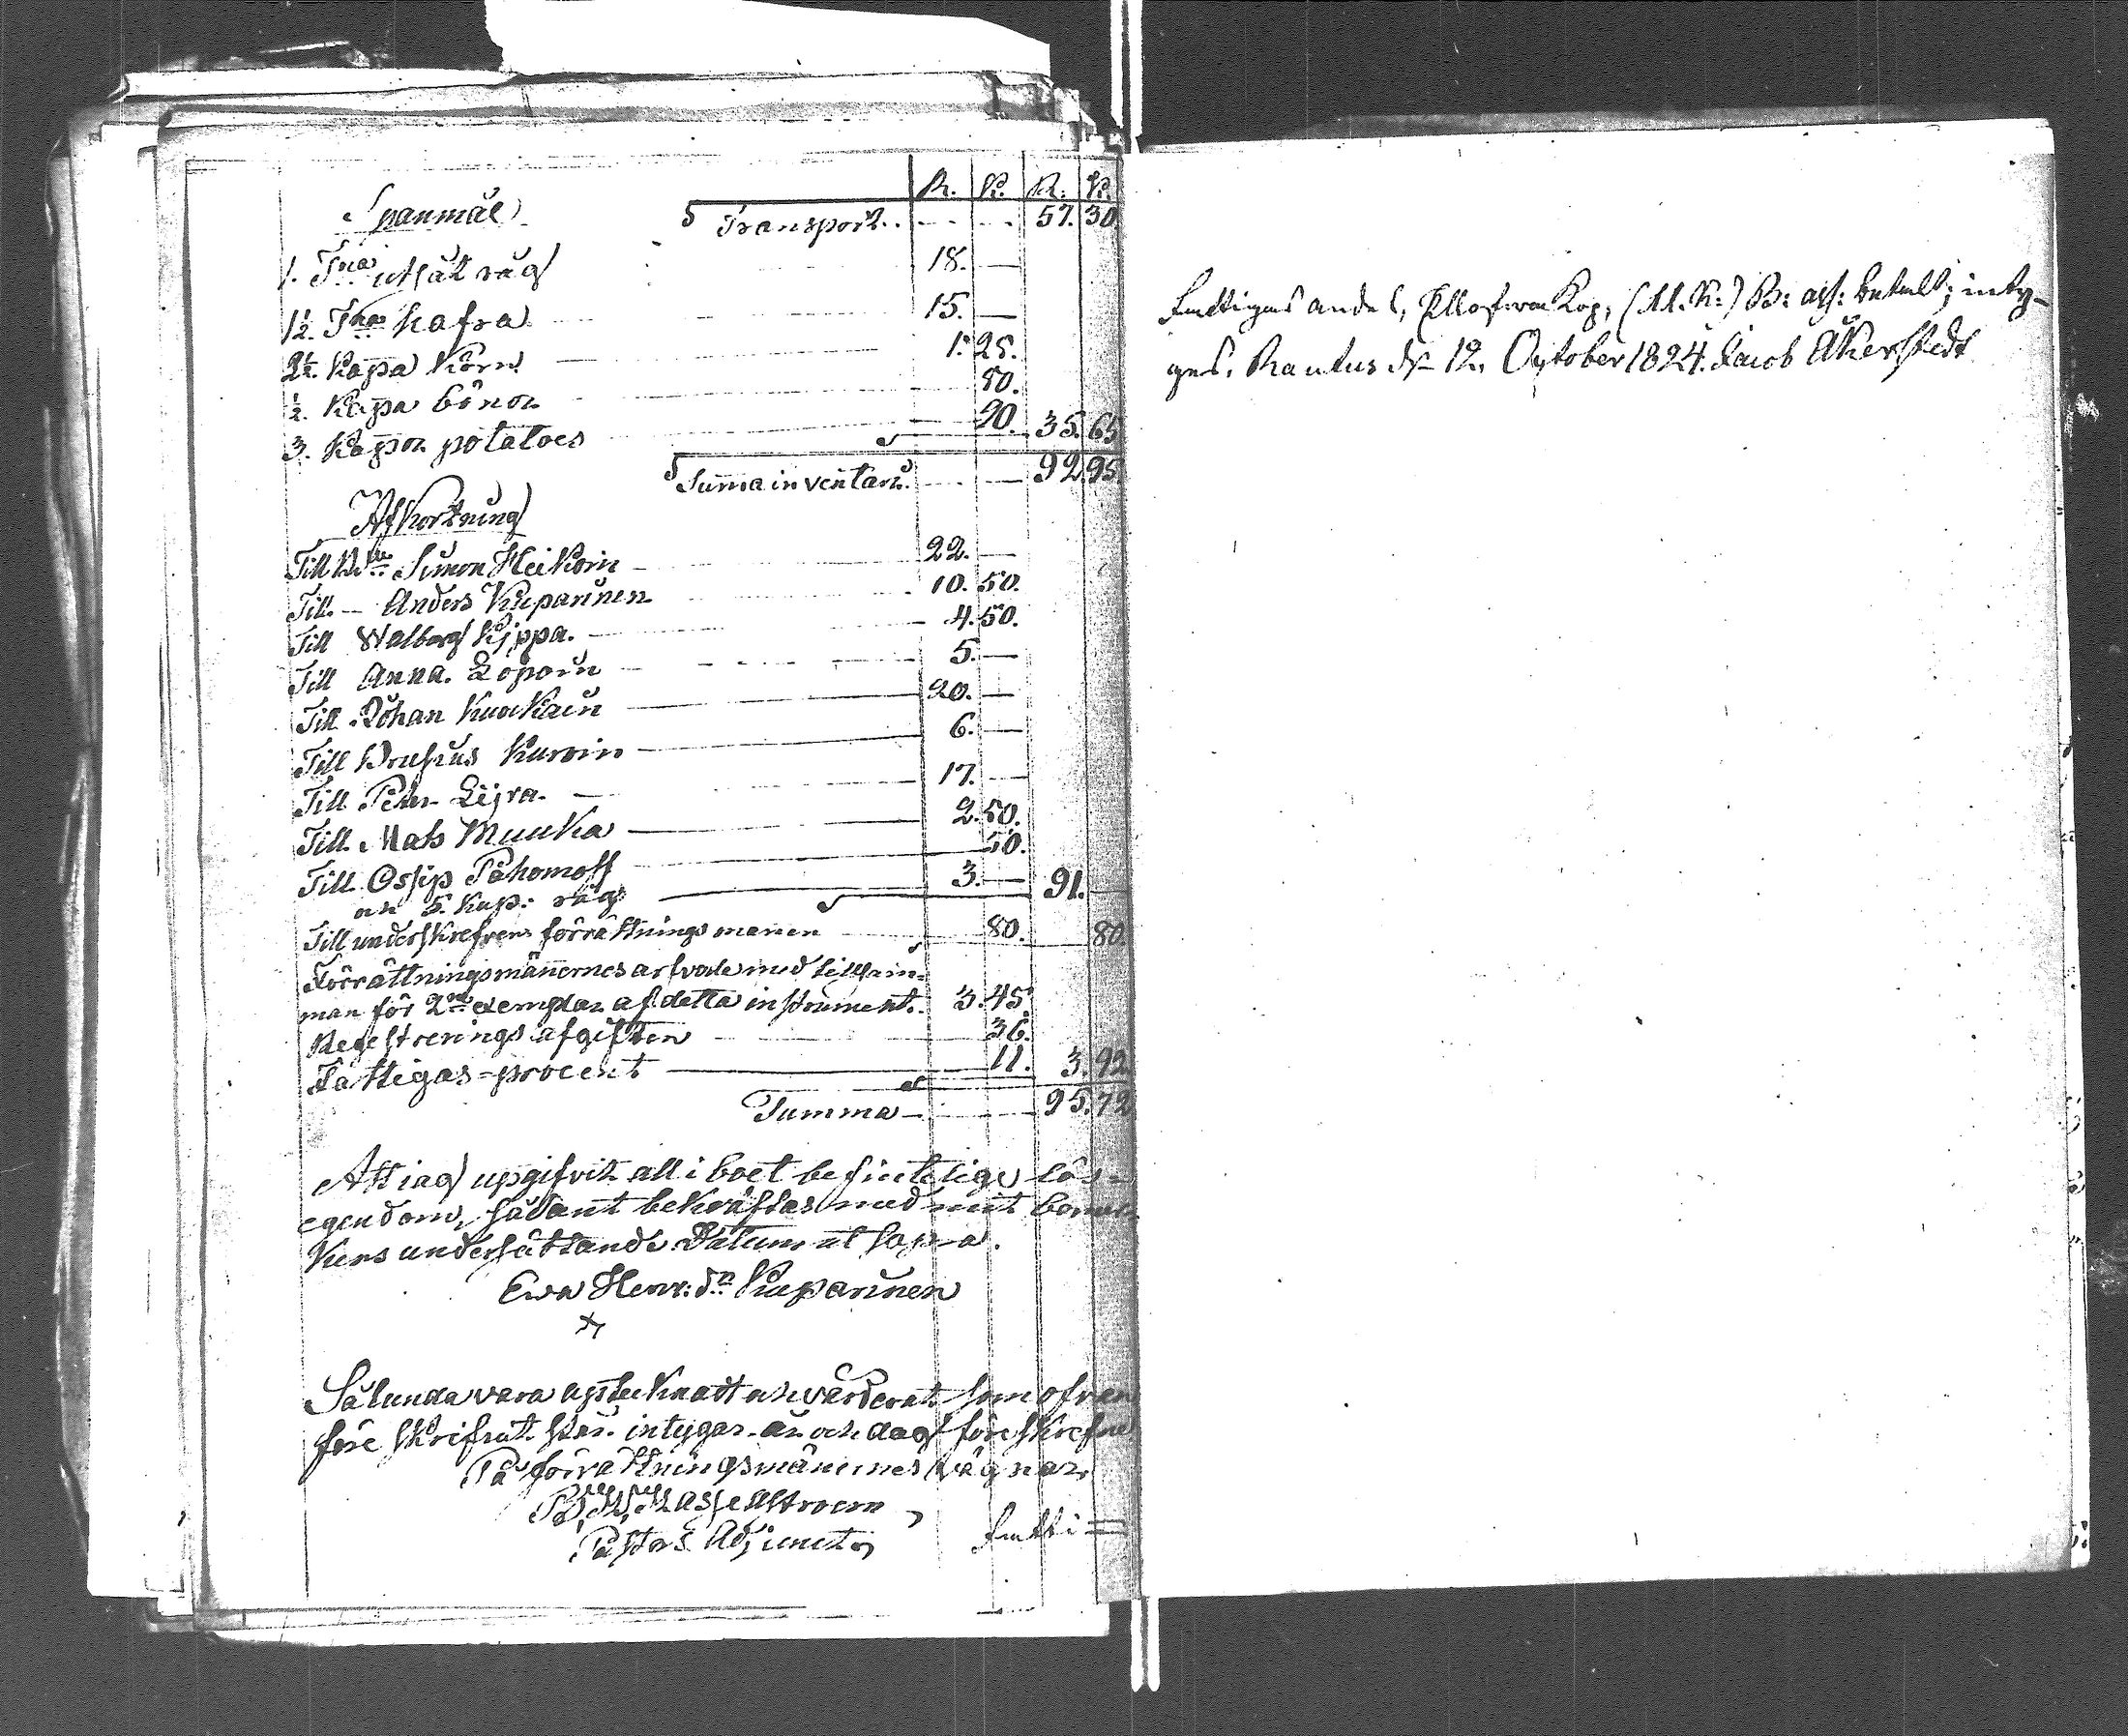 R. K. R. K.
Spanmål Transport.. 57. 30.
1. Tna utsät råg 18. —
1½. Tnor hafra 15. —
2½. Kapa Korn 1. 25.
½. Kapa bönor 50.
3. Kapor potatoes 90. 35. 65
Summa inventarii 92. 95.
Afkortning
Till Simon Heikoin 22. —
Till — Anders Kuparinen 10. 50.
Till Walborg Kjppa. 4. 50.
Till Anna. Loposin 5. —
Till Johan Kuokain 20. —
Till Brusius Kuroin 6. —
Till Peter Leijra. 17. —
Till Mats Muuka 2. 50.
Till Ossip Pahomoff 50.
och 5. Kap: råg 3. — 91. —
Till underskrefvene förrättningsmannen 80. 80.
Förrättningsmännernes arfvode med tillsam-
man för 2ne exemplar af detta instrument. 3. 45.
Registrerings afgiften 36.
Fattigas-procent 11. 3. 92
Summa 95. 72
Att jag upgifvit all i boet befintelige lös-
egendom, sådant bekräftas med mit bomär-
kens undersättande Datum ut supra.
Ewa Henr: dr Kuparinen
x
Sålunda vara upstecknadt och värderat som ofvan
före skrifvit står. intygar. år och dag föreskrefne
På förrättningsmännernes vägnar,
Pastors Adjunct,
Fatti=
Fattigas andel, Ellofva Kop, (11. K:) B: ass: betalt; inty-
gas. Rautus d. 12. October 1824. Jacob Åkerstedt